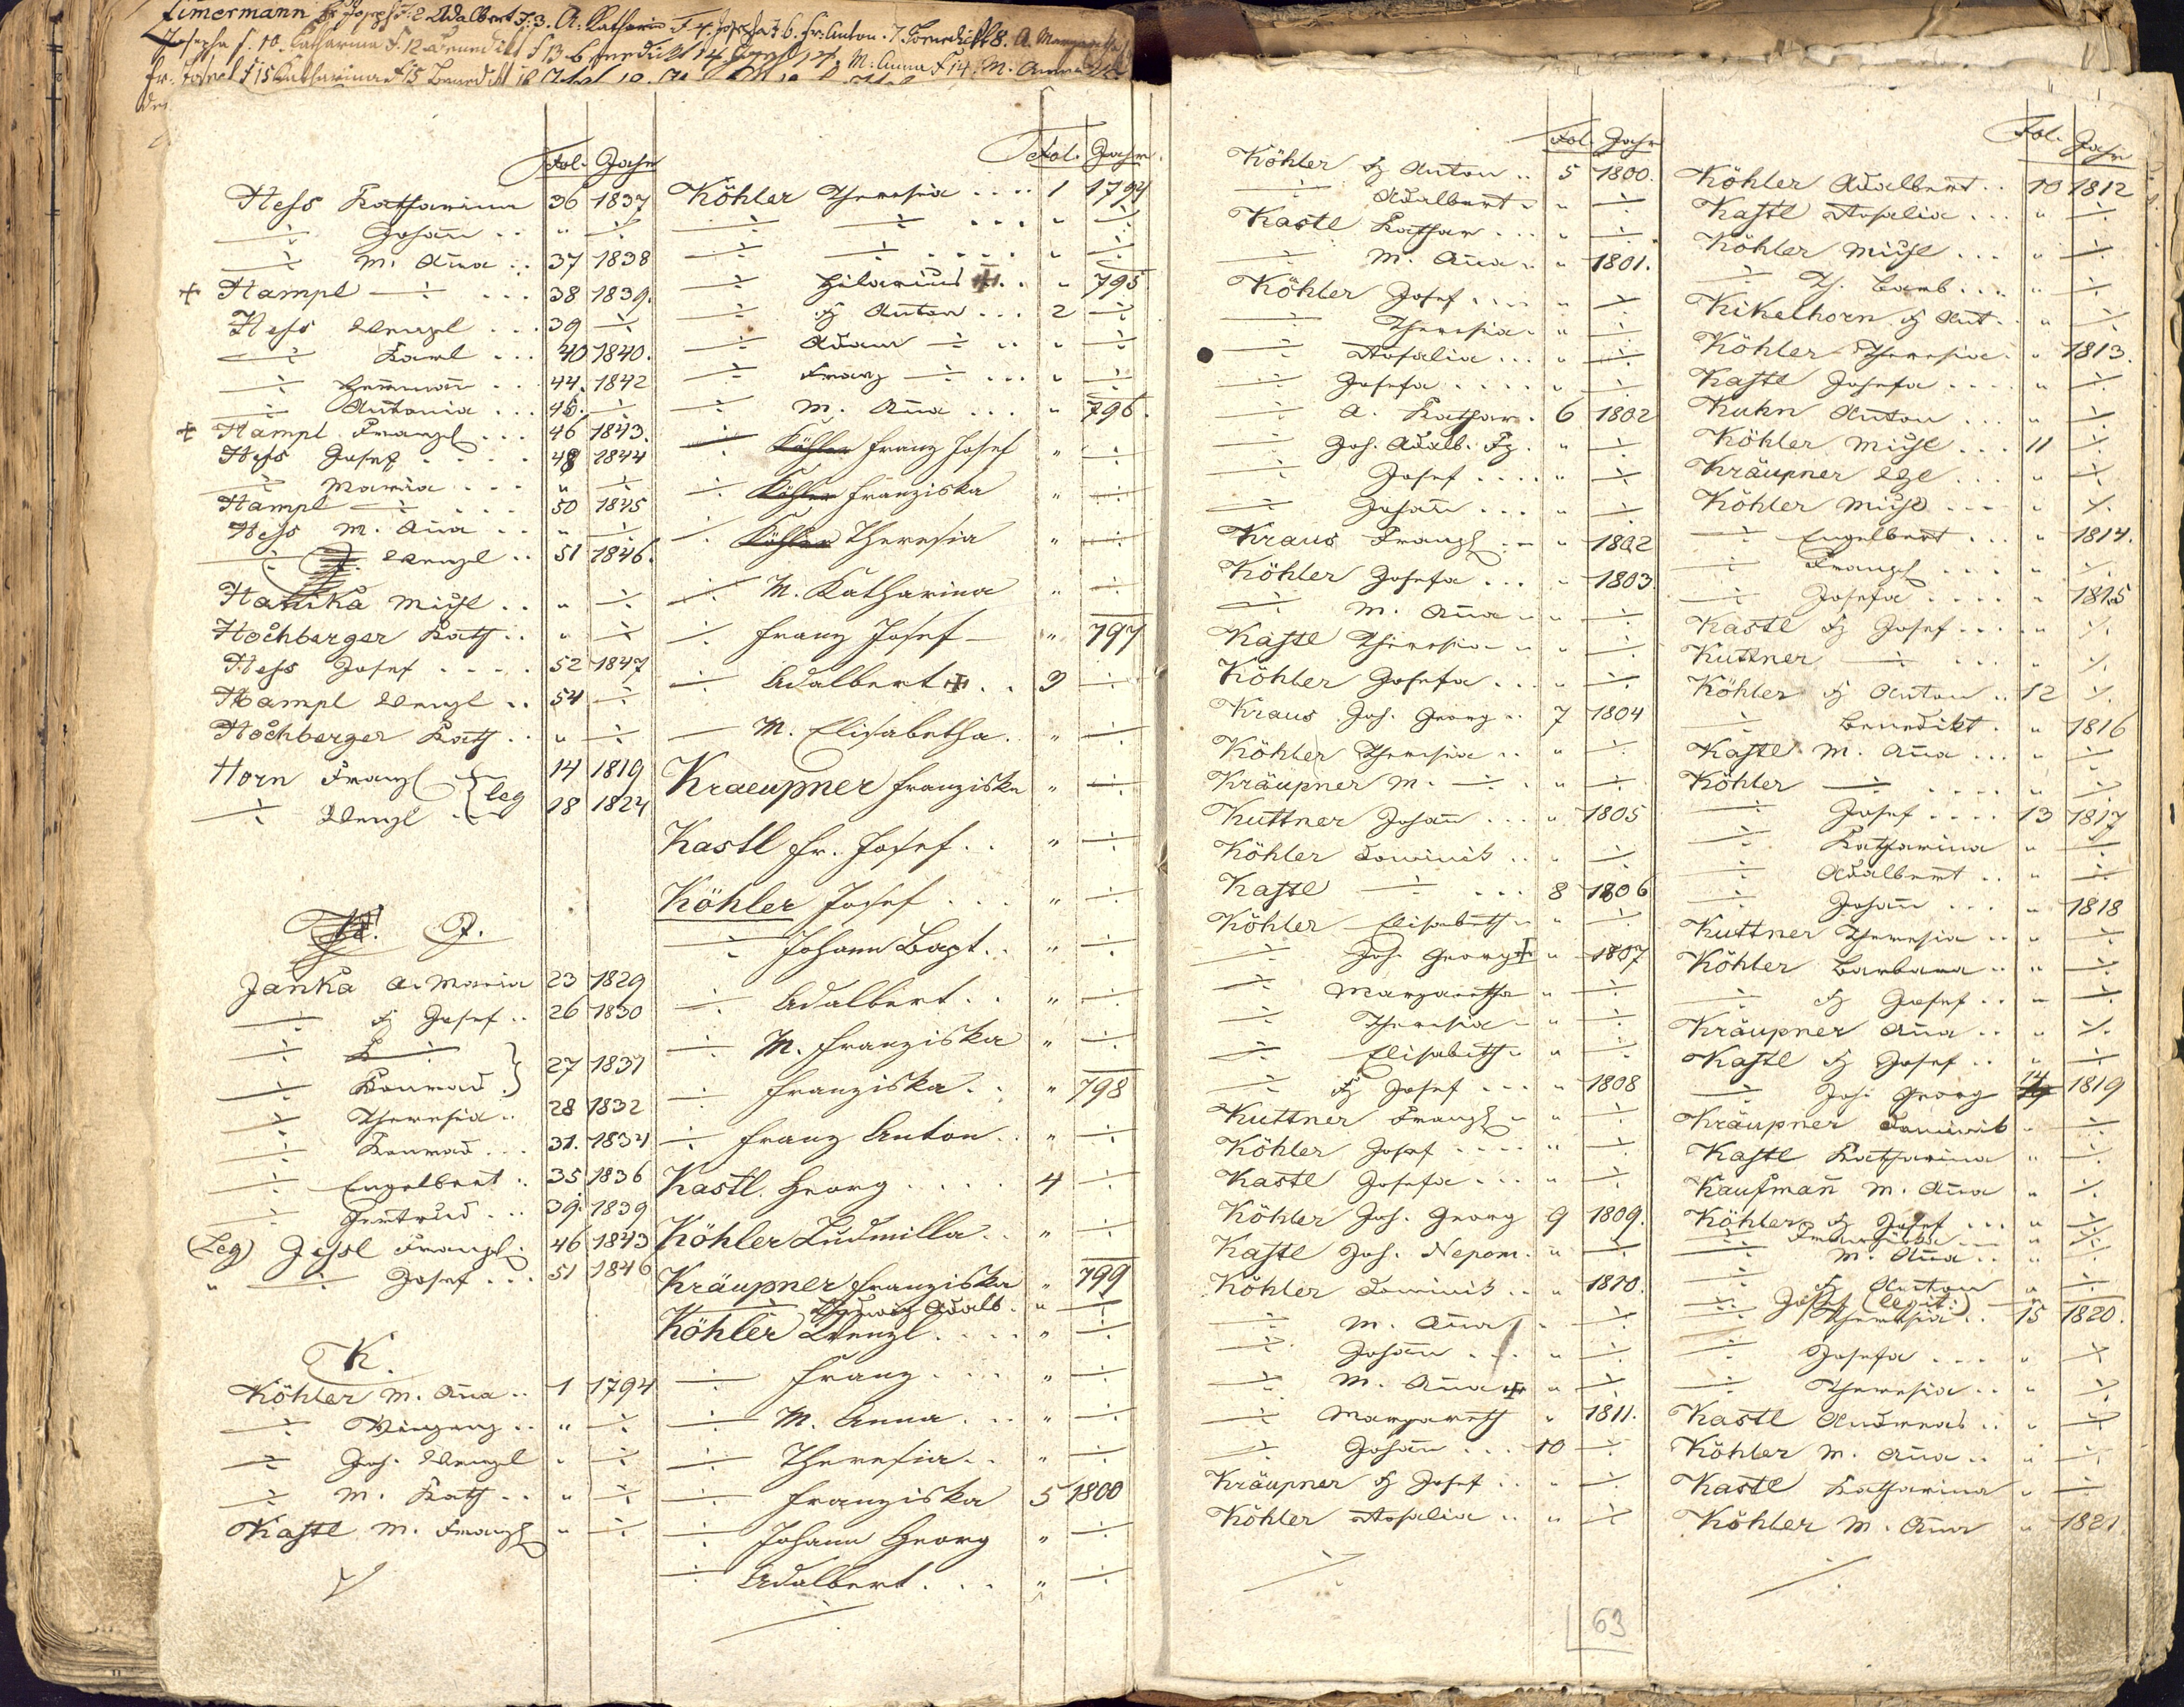 Fol. Jahr
Hess Katharina 36 1837
÷ Johañ .. " ÷
÷ M. Aña .. 37 1838
+ Hampl ÷ ... 38 1839.
Hess Wenzel ... 39 ÷
÷ Karl ... 40 1840.
÷ Hermañ .. 44. 1842
÷ Antonia ... 45. ÷
+ Hampl Franz ... 46 1843.
Hess Josef .... 48 1844
÷ Maria ... " ÷
Hampl ÷ ... 50 1845
Hess M. Aña .. " ÷
÷ Wenzel .. 51 1846.
Hanika Michl .. " ÷
Hochberger Kath .. " ÷
Hess Josef .... 52 1847
Hampl Wenzl .. 54 ÷
Hochberger Kath .. " ÷
Horn Franz } leg 14 1819
÷ Wenzl 18 1824
J.
Janka A. Maria 23 1829
÷ Fz Josef .. 26 1830
÷ ÷
÷ Konrad } 27 1831
÷ Theresia .. 28 1832
÷ Konrad ... 31. 1834
÷ Engelbert .. 35 1836
÷ Gertrud ... 39. 1839
(Leg) Jessl Franz . 46 1843
" ÷ Josef ... 51 1846
K.
Köhler M. Aña .. 1 1794
÷ Vinzenz .. " ÷
÷ Joh. Wenzl " ÷
÷ M. Kath .. " ÷
Kastl M. Franz " ÷
Fol. Jahr
Köhler Theresia .... 1 1794
÷ ÷ ... " ÷
÷ ÷ .... " ÷
÷ Hilarius +. " 795
÷ Fz Anton ... 2 ÷
÷ Adam ÷ .. " ÷
÷ Franz ÷ ... " ÷
÷ M. Aña ... " 796.
÷ Köhler Franz Josef " ÷
÷ Köhler Franziska " ÷
÷ Köhler Theresia " ÷
÷ M. Katharina " ÷
÷ Franz Josef " 797
÷ Adalbert + .. 3 ÷
— M. Elisabetha. " ÷
Kraeupner Franziska " ÷
Kastl Fr. Josef .. " ÷
Köhler Josef ... " ÷
÷ Johann Bapt .. " ÷
÷ Adalbert .. " ÷
÷ M. Franziska " ÷
÷ Franziska .. " 798
÷ Franz Anton .. " ÷
Kastl Georg .... 4 ÷
Köhler Ludmilla .. " ÷
Kräupner Franziska " 799
÷ Adalb. " ÷
Köhler Wenzl .... " ÷
÷ Franz .... " ÷
÷ M. Anna ... " ÷
÷ Theresia .. " ÷
÷ Franziska 5 1800
÷ Johann Georg " ÷
÷ Adalbert ... " ÷
Fol. Jahr
Köhler Fz Anton .. 5 1800.
÷ Adalbert .. " ÷
Kastl Kathar ... " ÷
÷ M. Aña .. " 1801.
Köhler Josef .... " ÷
÷ Theresia .. " ÷
÷ Rosalia ... " ÷
÷ Josefa .... " ÷
÷ A. Kathar. 6 1802
÷ Joh. Adalb. Fz. " ÷
÷ Josef .... " ÷
÷ Johañ ... " ÷
Kraus Franz .. " 1802
Köhler Josefa ... " 1803.
÷ M. Aña .. " ÷
Kastl Theresia .. " ÷
Köhler Josefa ... " ÷
Kraus Joh. Georg .. 7 1804
Köhler Theresia .. " ÷
Kräupner M. ÷ . " ÷
Kuttner Johañ ... " 1805
Köhler Dominik .. " ÷
Kastl ÷ ... 8 1806
Köhler Elisabeth .. " ÷
÷ Joh. Georg + " 1807
÷ Margaretha " ÷
÷ Theresia .. " ÷
÷ Elisabeth .. " ÷
÷ Fz Josef ... " 1808
Kuttner Franz .. " ÷
Köhler Josef .... " ÷
Kastl Josefa ... " ÷
Köhler Joh. Georg 9 1809.
Kastl Joh. Nepom. " ÷
Köhler Dominik .. " 1810.
÷ M. Aña " ÷
÷ Johañ ... " ÷
÷ M. Aña + " ÷
÷ Margareth " 1811.
÷ Johañ ... 10 ÷
Kräupner Fz Josef .. " ÷
Köhler Rosalia .. " ÷
63
Fol. Jahr
Köhler Adalbert .. 10 1812
Kastl Rosalia ... " ÷
Köhler Michl ... " ÷
÷ Th. Barb ... " ÷
Kikelhorn Fz Ant. " ÷
Köhler Theresia . " 1813.
Kastl Josefa .... " ÷
Kuhn Anton ... " ÷
Köhler Michl ... 11 ÷
Kräupner Wzl ... " ÷
Köhler Michl ... " ÷
÷ Engelbert ... " 1814.
÷ Franz .... " ÷
÷ Josefa .... " 1815
Kastl Fz Josef ... " ÷
Kuttner ÷ ... " ÷
Köhler Fz Anton .. 12 ÷
÷ Benedikt . " 1816
Kastl M. Aña ... " ÷
Köhler ÷ .... " ÷
÷ Josef .... 13 1817
÷ Katharina " ÷
÷ Adalbert .. " ÷
÷ Johañ ... " 1818
Kuttner Theresia .. " ÷
Köhler Barbara .. " ÷
÷ Fz Josef .. " ÷
Kräupner Aña .. " ÷
Kastl Fz Josef .. " ÷
÷ Joh. Georg 14 1819
Kräupner Dominik " ÷
Kastl Katharina " ÷
Kaufmañ M. Aña " ÷
Köhler Fz Josef ... " ÷
÷ Franziska ... " ÷
÷ M. Aña .. " ÷
÷ Fz Anton " ÷
÷ Josef (legit:) "
÷ Theresia .. 15 1820.
÷ Josefa ... " ÷
÷ Theresia .. " ÷
Kastl Andreas .. " ÷
Köhler M. Aña .. " ÷
Kastl Katharina " ÷
Köhler M. Aña " 1821